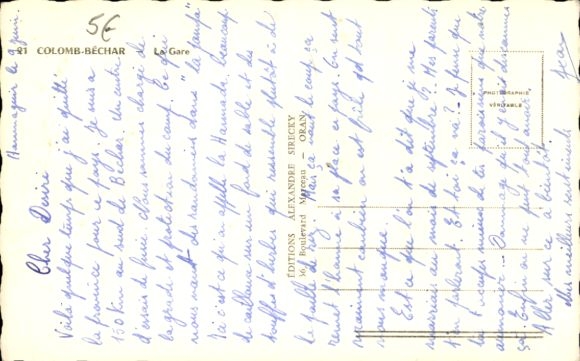 5€
21 COLOMB-BÉCHAR La Gare
ÉDITIONS ALEXANDRE SIRECKY
36, Boulevard Marceau - ORAN
PHOTOGRAPHIE
VÉRITABLE
Hammaguir le 9 juin
Cher Désiré
Voilà quelque temps que j'ai quitté
la province pour ce pays. Je suis à
150 km au sud de Béchar. Un centre
d'essais de fusée. Nous sommes chargé de
la garde et protection du camp. Ce qui
nous vaut des randonnées dans "la pampa"
Ici c'est ce qu'on appelle la Hamada. beaucoup
de cailloux sur un fond de sable et des
touffes d'herbes qui ressemble plutôt à de
la paille de fer. Mais ça vaut le coup, ça
remet l'homme à sa place en fait. On sent
vraiment combien on est fragile quand tout
nous manque
Est ce que l'on t'a dit que je me
trouvais au mois de septembre ? Mes parents
t'en parleront. Et toi ça va ? Je pense que
tu t'occupes mieux de tes paroissiens que notre
aumônier. Dommage
ça. Enfin on ne peut tout avoir
Aller sur ce à bientôt
Mes meilleurs sentiments
Jean